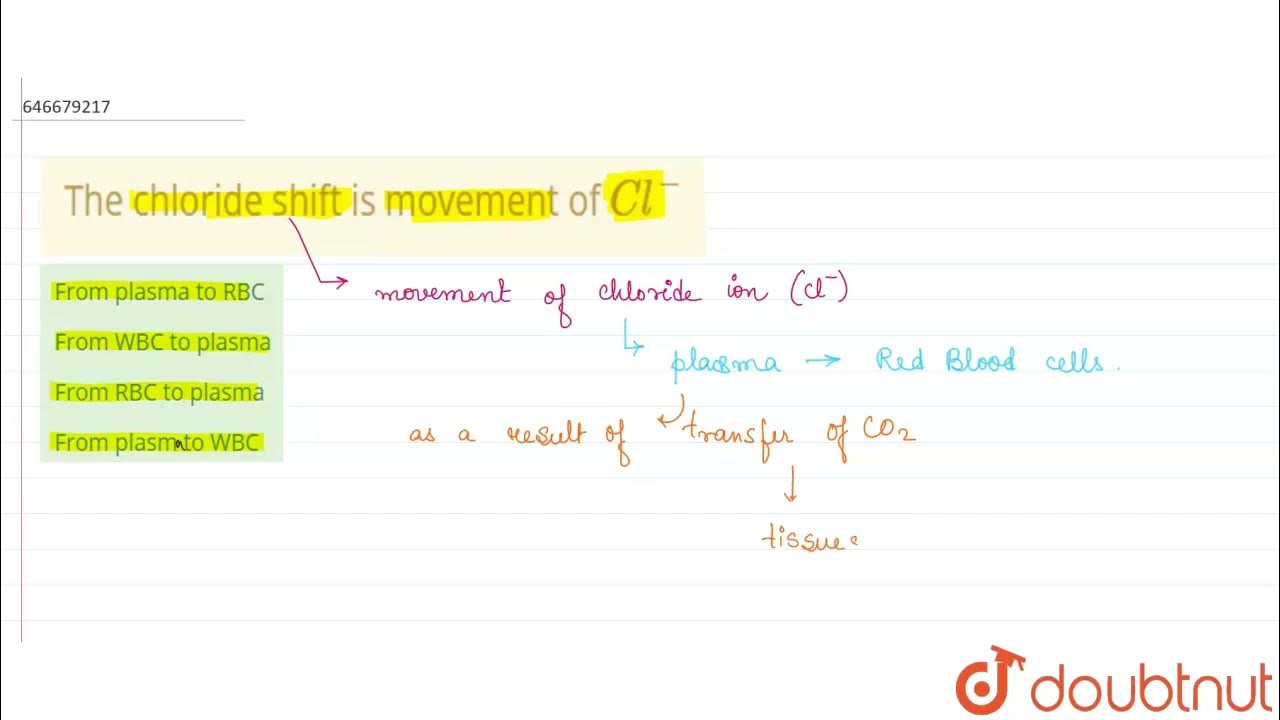 646679217
The chloride shift is movement of Cl⁻
From plasma to RBC
From WBC to plasma
From RBC to plasma
From plasma to WBC
movement of chloride ion (Cl⁻)
plasma → Red Blood cells.
as a result of transfer of CO₂
↓
tissue
doubtnut